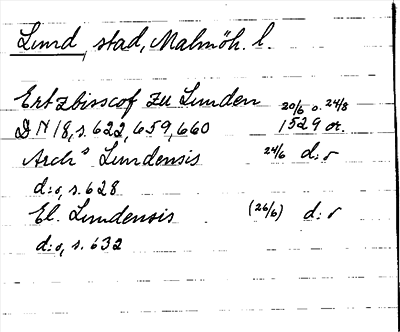 Lund, stad, Malmöh. l.
Ertzbisscof zu Lunden 20/6 o. 24/8
D N 18, s. 622, 659, 660 1529 or.
Archs Lundensis 24/6 d:o
d:o, s. 628
El. Lundensis (26/6) d:o
d:o, s. 632